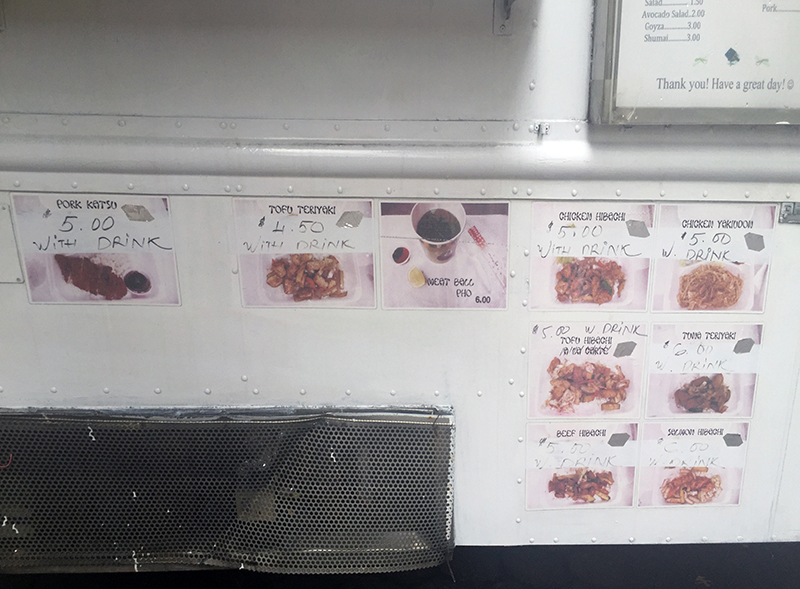 Salad............1.50
Avocado Salad..2.00
Goyza............3.00
Shumai..........3.00
Pork
Thank you! Have a great day! ☺
PORK KATSU
$ 5.00
WITH DRINK
TOFU TERIYAKI
$ 4.50
WITH DRINK
MEAT BALL
PHO
6.00
CHICKEN HIBACHI
$ 5.00
WITH DRINK
CHICKEN YAKIUDON
$ 5.00
W. DRINK
$ 5.00 W DRINK
TOFU HIBACHI
TUNA TERIYAKI
$ 6.00
W. DRINK
BEEF HIBACHI
$ 5.00
W DRINK
SALMON HIBACHI
W DRINK